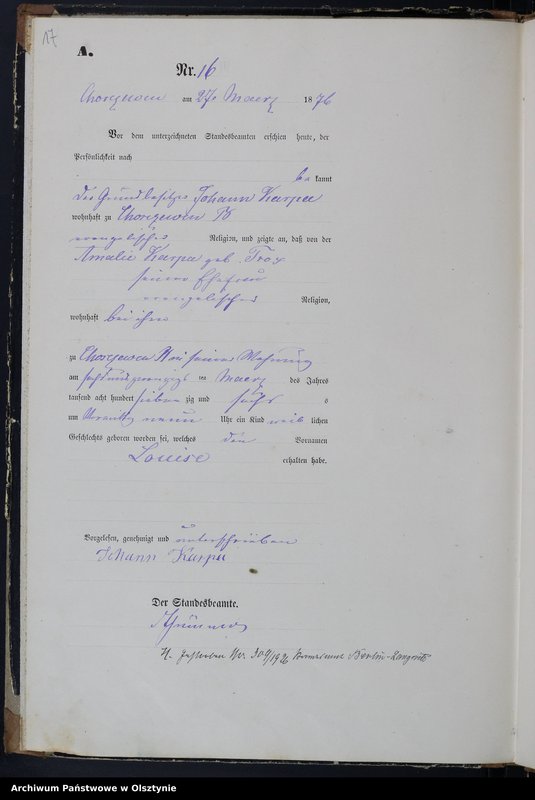 17
A.
Nr. 16
Chorzewen am 27. Maerz 1876
Vor dem unterzeichneten Standesbeamten erschien heute, der
Persönlichkeit nach
be kannt
der Grundbesitzer Johann Karpa
wohnhaft zu Chorzewen
evangelischer Religion, und zeigte an, daß von der
Amalie Karpa geb. Trox
seiner Ehefrau
evangelischer Religion,
wohnhaft bei ihm
zu Chorzewen in seiner Wohnung
am sechsundzwanzigsten Maerz des Jahres
tausend acht hundert sieben zig und sechs
um Vormittag neun Uhr ein Kind weib lichen
Geschlechts geboren worden sei, welches den Vornamen
Louise erhalten habe.
Vorgelesen, genehmigt und unterschrieben
Johann Karpa
Der Standesbeamte.
Nr. 304/1926 Standesamt Berlin-
Archiwum Państwowe w Olsztynie